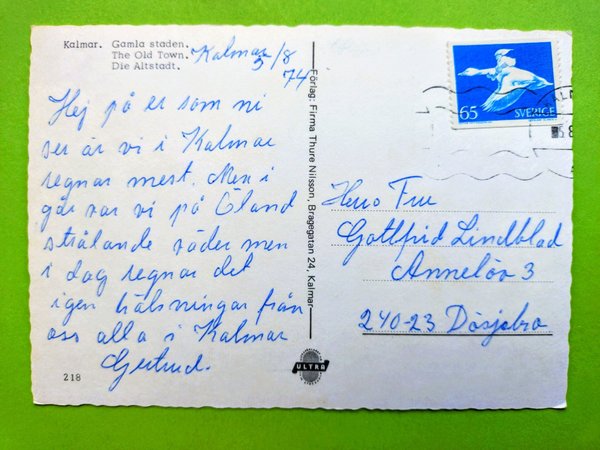 Kalmar. Gamla staden.
The Old Town.
Die Altstadt.
Kalmar 5/8
74
Hej på er som ni
ser är vi i Kalmar
regnar mest. Men i
går var vi på Öland
strålande väder men
i dag regnar det
igen hälsningar från
oss alla i Kalmar
Gertrud.
218
Förlag: Firma Thure Nilsson, Bragegatan 24, Kalmar
ULTRA
65 SVERIGE
Herr Fru
Gottfrid Lindblad
Annelöv 3
240-23 Dösjebro